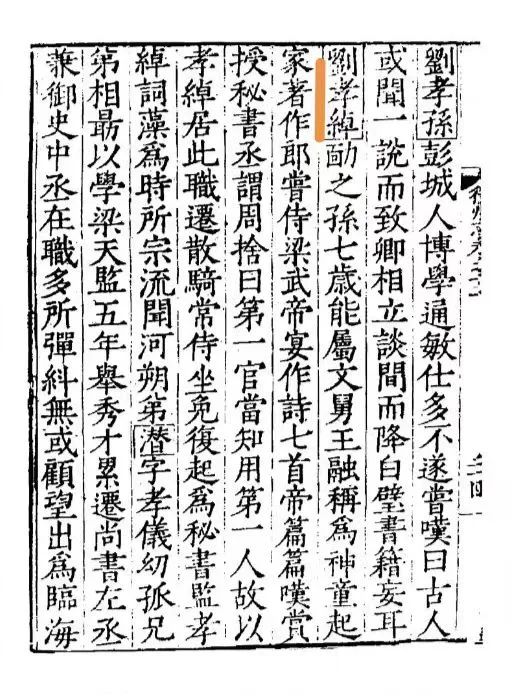 劉孝孫彭城人博學通敏仕多不遂嘗嘆曰古人
或聞一說而致卿相立談間而降白璧書籍妄耳
劉孝綽勔之孫七歲能屬文舅王融稱爲神童起
家著作郎嘗侍梁武帝宴作詩七首帝篇篇嘆賞
授秘書丞謂周捨曰第一官當知用第一人故以
孝綽居此職遷散騎常侍坐免復起爲秘書監孝
綽詞藻爲時所宗流聞河朔第潜字孝儀幼孤兄
第相勗以學梁天監五年舉秀才累遷尚書左丞
兼御史中丞在職多所彈糾無或顧望出爲臨海